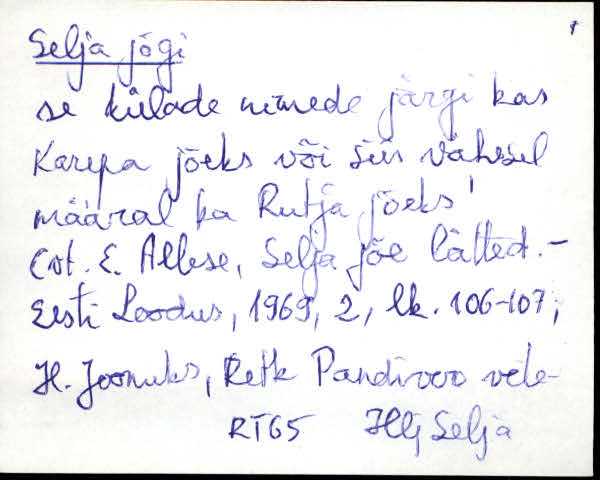 Selja jõgi
se külade nimede järgi kas
Karepa jõeks või siis vähesel
määral ka Rutja jõeks
(vt. E. Allese, Selja jõe lätted. -
Eesti Loodus, 1969, 2, lk. 106-107;
H. Joonuks, Retk Pandivere vete-
RT65 Hlj Selja